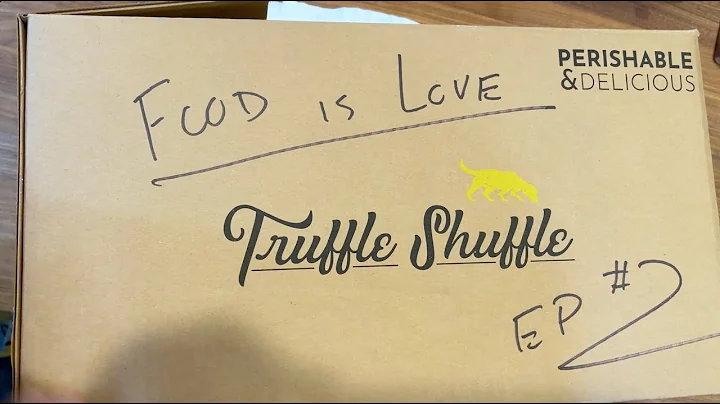 PERISHABLE
&DELICIOUS
FOOD IS LOVE
Truffle Shuffle
EP #2